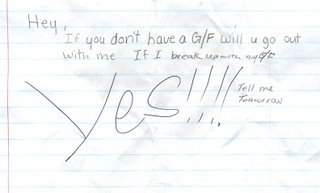 Hey,
If you don't have a G/F will u go out
with me If I break up with my G/F
Yes!!!!
Tell me
Tomorrow